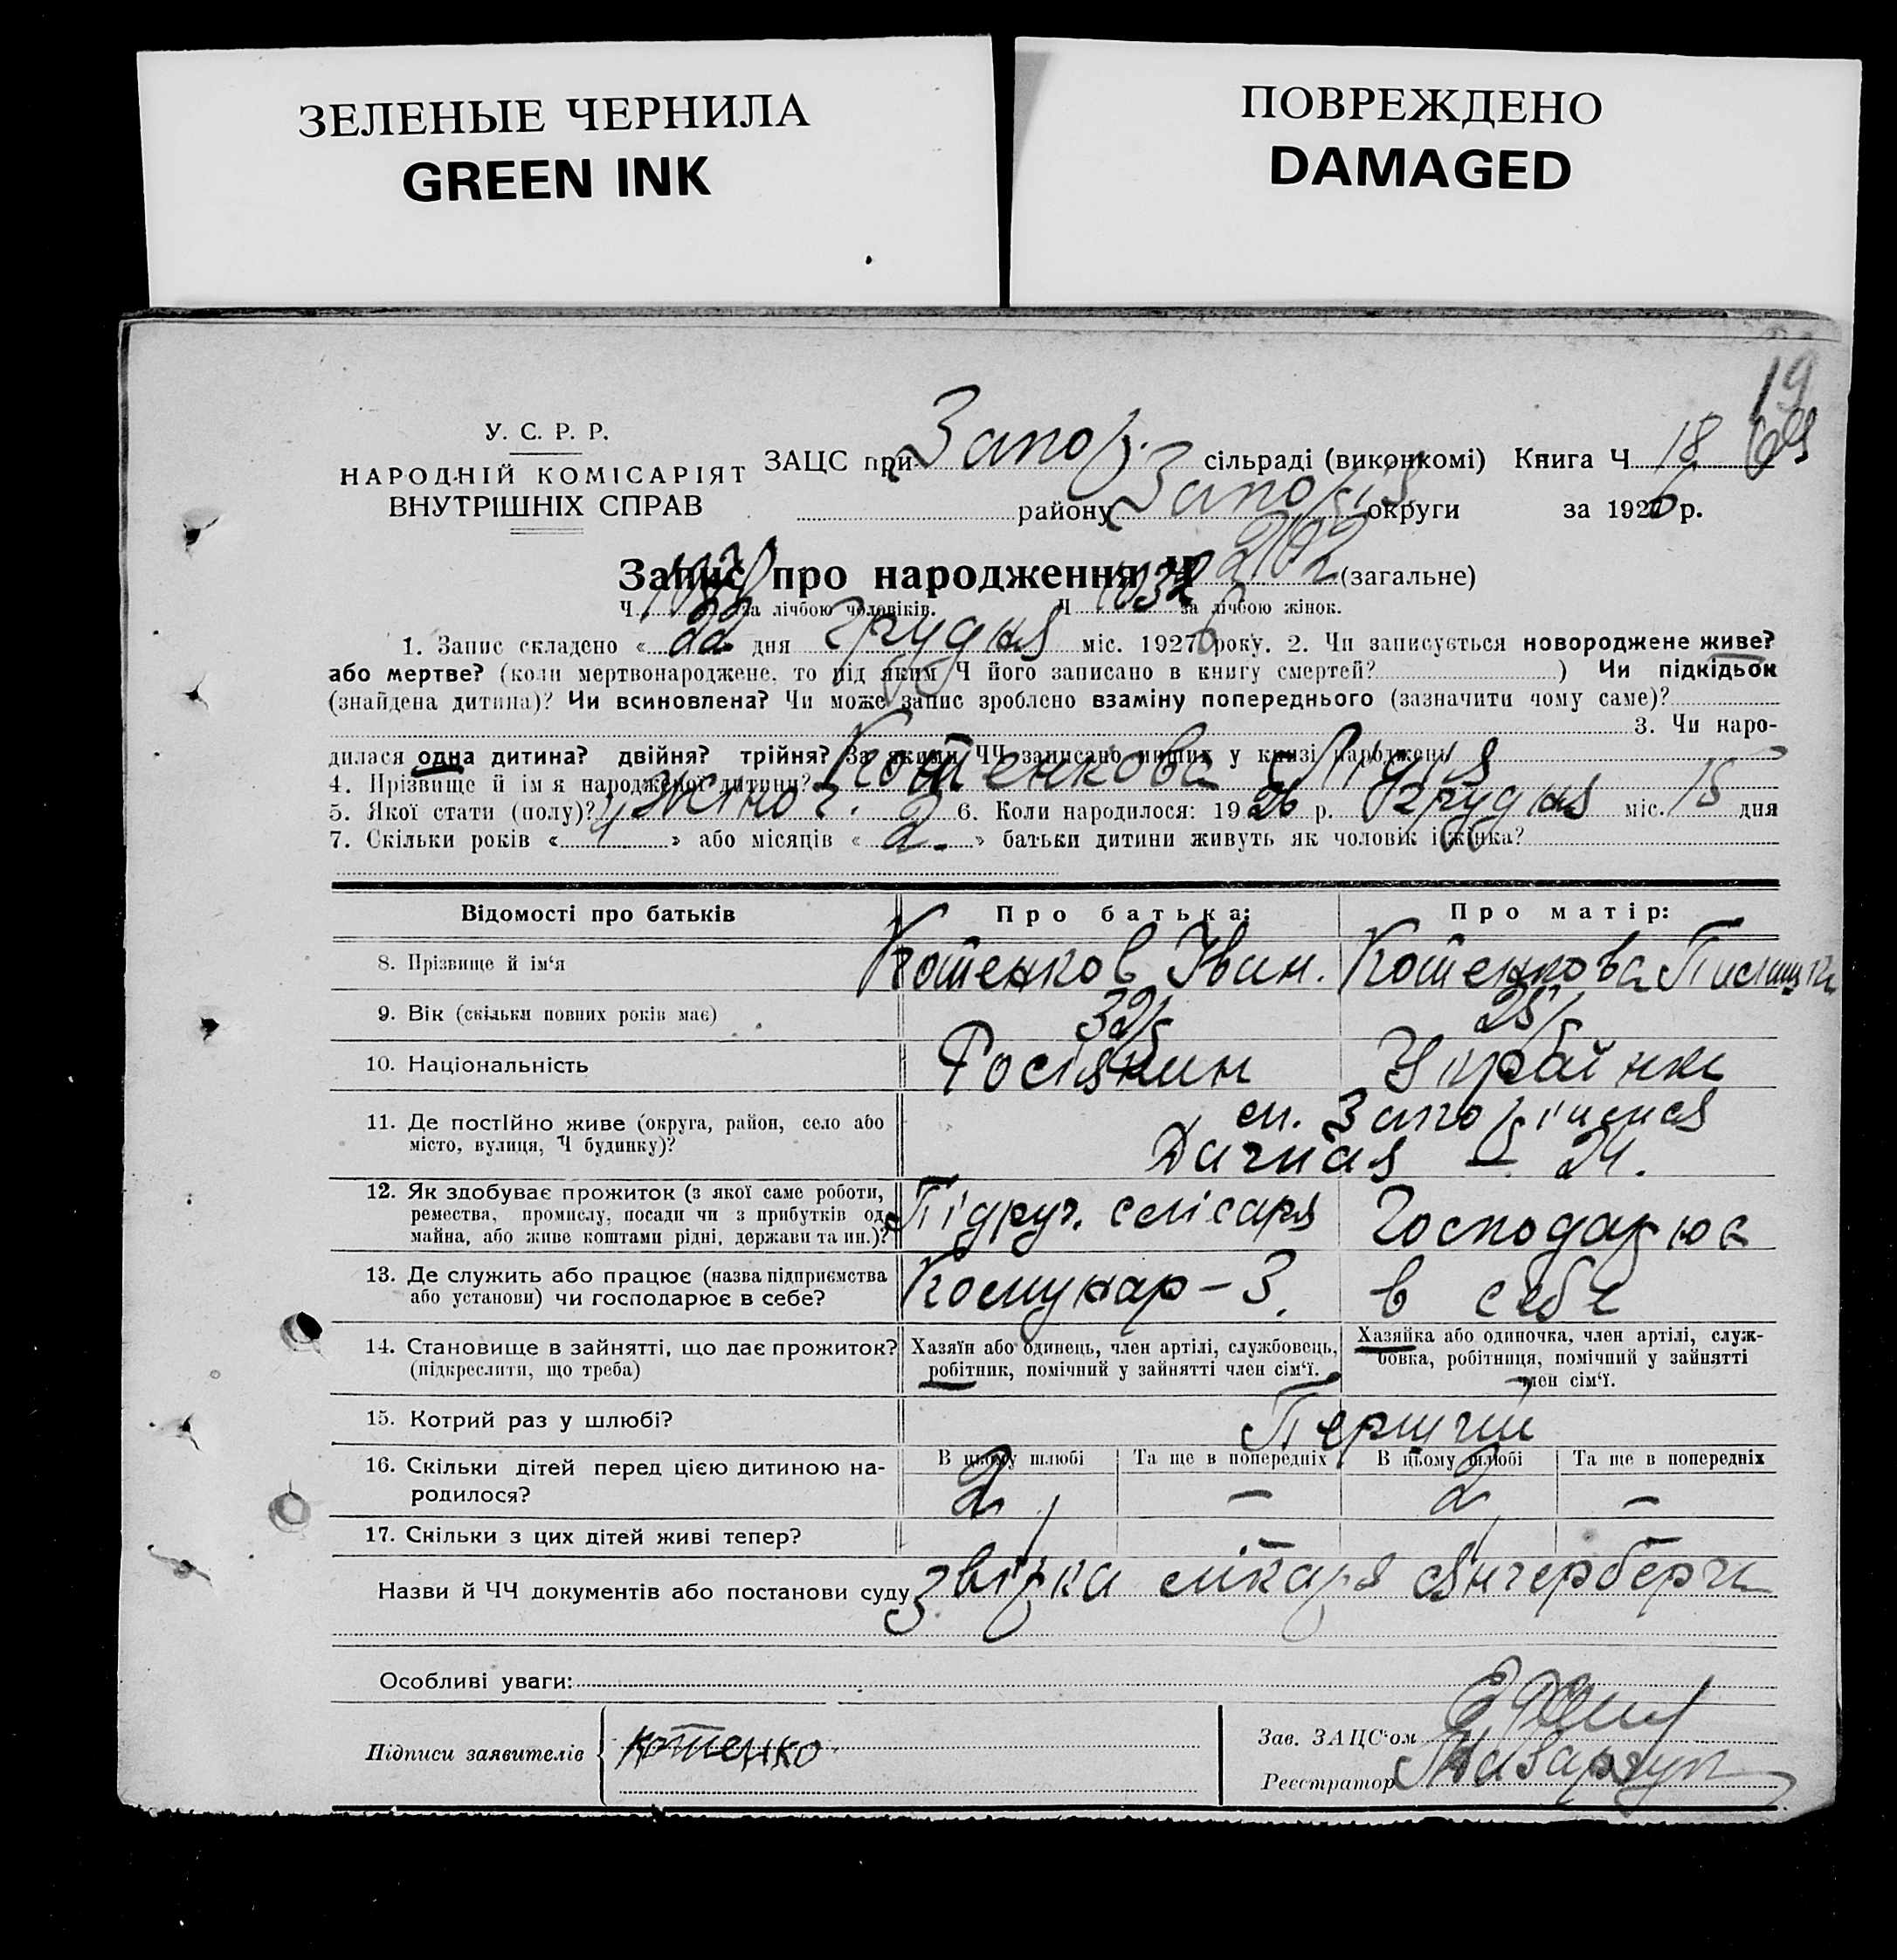 ЗЕЛЕНЫЕ ЧЕРНИЛА
GREEN INK
ПОВРЕЖДЕНО
DAMAGED
19
У. С. Р. Р.
НАРОДНІЙ КОМІСАРІЯТ
ВНУТРІШНІХ СПРАВ
ЗАЦС при Запор. сільраді (виконкомі) Книга Ч 18
району Запоріз округи за 1926 р.
Запис про народження Ч 2102 (загальне)
Ч за лічбою чоловіків. Ч 1032 за лічбою жінок.
1. Запис складено « 22 » дня Грудня міс. 1926 року. 2. Чи записується новороджене живе?
або мертве? (коли мертвонароджене, то під яким Ч його записано в книгу смертей? ) Чи підкідьок
(знайдена дитина)? Чи всиновлена? Чи може запис зроблено взаміну попереднього (зазначити чому саме)?
3. Чи наро-
дилася одна дитина? двійня? трійня? За якими ЧЧ записано инших у книзі народжень
4. Прізвище й ім'я народженої дитини? Котенкова Лидия
5. Якої стати (полу)? жіноч. 6. Коли народилося: 1926 р. Грудня міс. 15 дня
7. Скільки років « 4 » або місяців « 2 - » батьки дитини живуть як чоловік і жінка?
Відомості про батьків
Про батька:
Про матір:
8. Прізвище й ім'я
Котенков Іван.
Котенкова
9. Вік (скільки повних років має)
32
25
10. Національність
Росіянин
Українка
11. Де постійно живе (округа, район, село або
місто, вулиця, Ч будинку)?
Дачная — 24.
12. Як здобуває прожиток (з якої саме роботи,
ремества, промислу, посади чи з прибутків од
майна, або живе коштами рідні, держави та ин.)?
Підруч. слісаря
Господарює
13. Де служить або працює (назва підприємства
або установи) чи господарює в себе?
Комунар - 3.
в себе
14. Становище в зайнятті, що дає прожиток?
(підкреслити, що треба)
Хазяїн або одинець, член артілі, службовець,
робітник, помічний у зайнятті член сім'ї.
Хазяйка або одиночка, член артілі, служ-
бовка, робітниця, помічний у зайнятті
член сім'ї.
15. Котрий раз у шлюбі?
Перший
16. Скільки дітей перед цією дитиною на-
родилося?
В цьому шлюбі
Та ще в попередніх
В цьому шлюбі
Та ще в попередніх
2
—
2
—
17. Скільки з цих дітей живі тепер?
Назви й ЧЧ документів або постанови суду звірка лікаря
Особливі уваги:
Підписи заявителів котенко
Зав. ЗАЦС'ом
Реєстратор